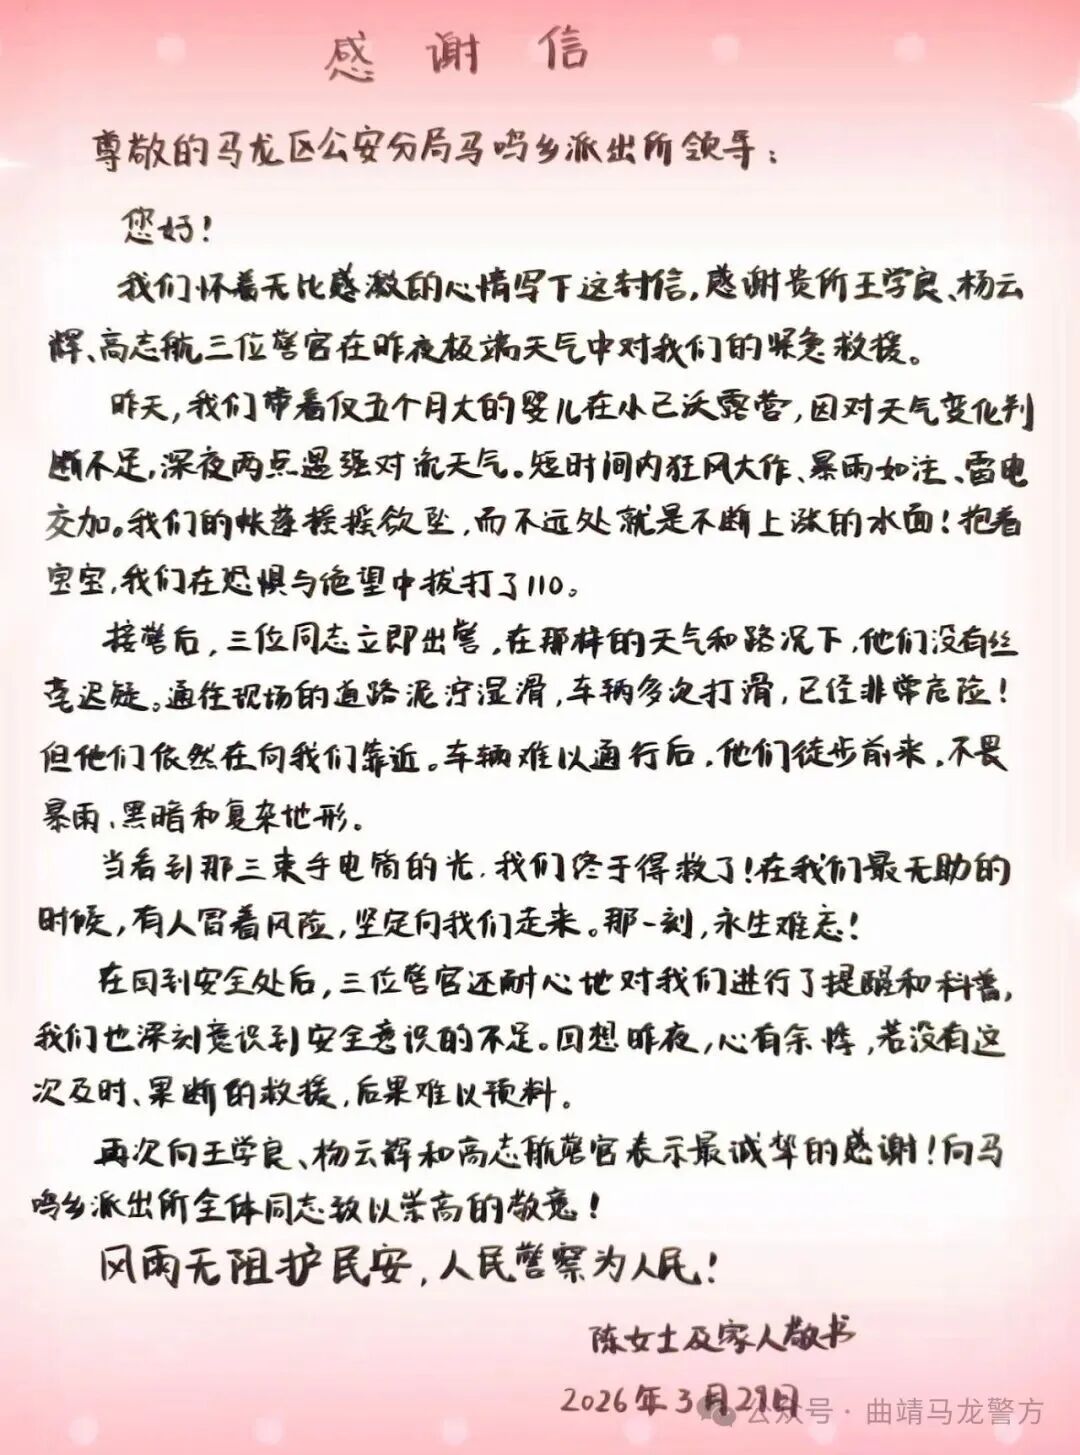 感谢信
尊敬的马龙区公安分局马鸣乡派出所领导：
您好！
我们怀着无比感激的心情写下这封信，感谢贵所王学良、杨云
辉、高志航三位警官在昨夜极端天气中对我们的紧急救援。
昨天，我们带着仅五个月大的婴儿在小已沃露营，因对天气变化判
断不足，深夜两点遇强对流天气。短时间内狂风大作、暴雨如注、雷电
交加。我们的帐篷摇摇欲坠，而不远处就是不断上涨的水面！抱着
宝宝，我们在恐惧与绝望中拨打了110。
接警后，三位同志立即出警，在那样的天气和路况下，他们没有丝
毫迟疑。通往现场的道路泥泞湿滑，车辆多次打滑，已经非常危险！
但他们依然在向我们靠近。车辆难以通行后，他们徒步前来，不畏
暴雨、黑暗和复杂地形。
当看到那三束手电筒的光，我们终于得救了！在我们最无助的
时候，有人冒着风险，坚定向我们走来。那一刻，永生难忘！
在回到安全处后，三位警官还耐心地对我们进行了提醒和科普，
我们也深刻意识到安全意识的不足。回想昨夜，心有余悸，若没有这
次及时、果断的救援，后果难以预料。
再次向王学良、杨云辉和高志航警官表示最诚挚的感谢！向马
鸣乡派出所全体同志致以崇高的敬意！
风雨无阻护民安，人民警察为人民！
陈女士及家人敬书
2026年3月29日
公众号·曲靖马龙警方